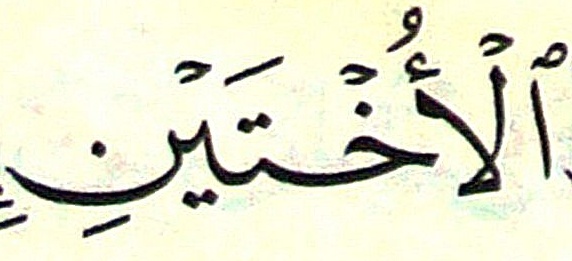 ٱلْأُخْتَيْنِ